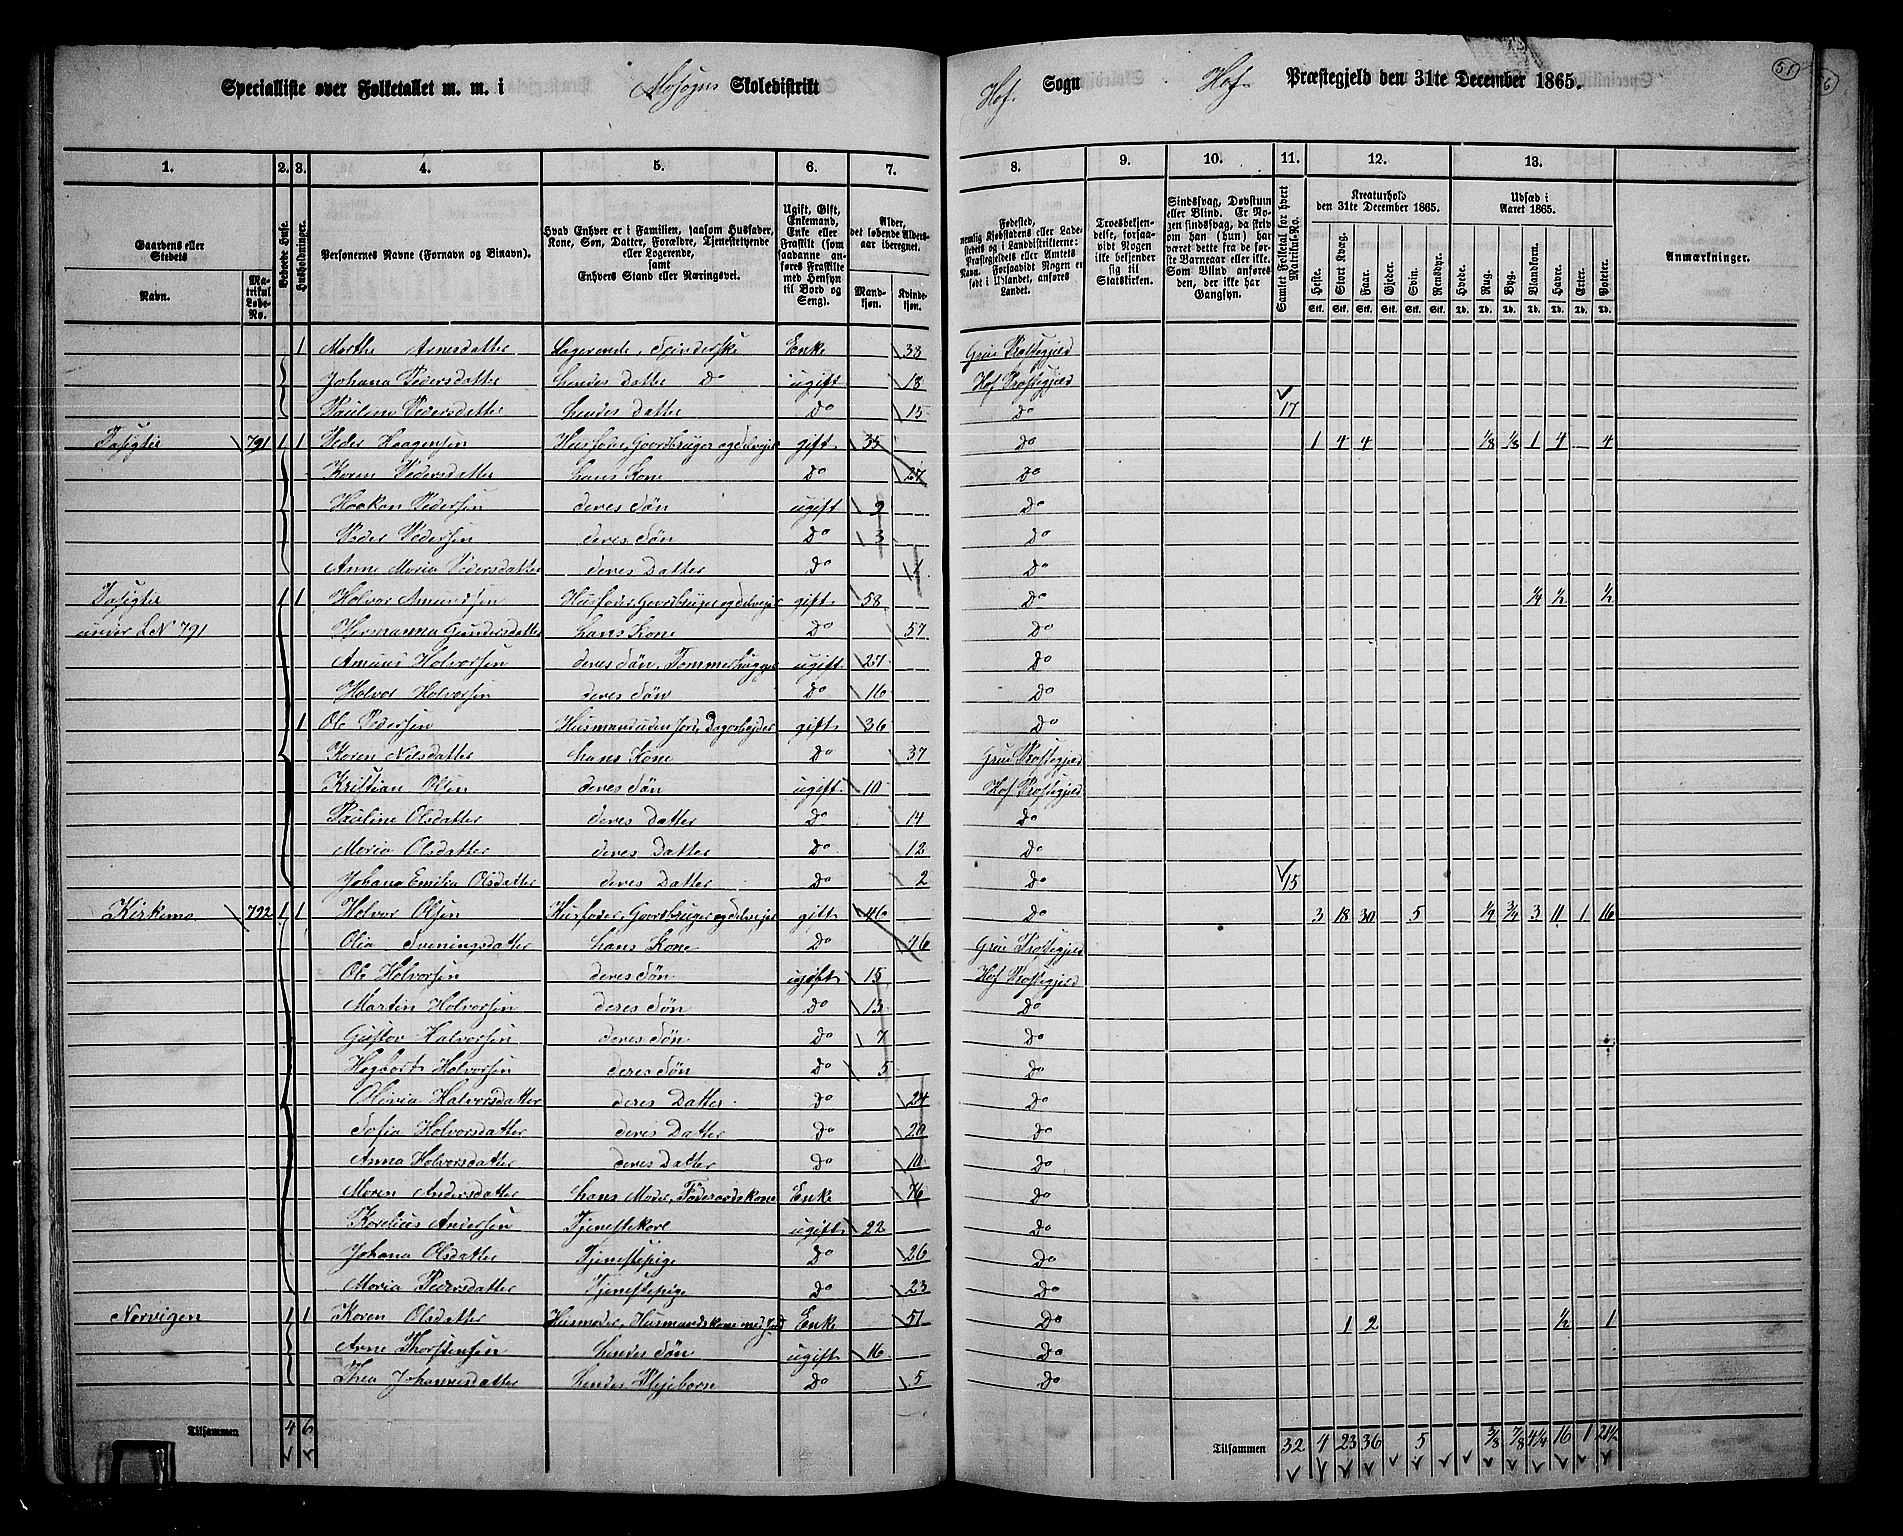 51
6
Specialliste over Folketallet m. m. i Skoledistrikt
Hof Sogn Hof Præstegjeld den 31te December 1865.
1. 2. 3. 4. 5. 6. 7. 8. 9. 10. 11. 12. 13.
Gaardens eller Stedets Navn. Matrikul Løbe-No. Beboede Huse. Husholdninger. Personernes Navne (Fornavn og Binavn). Hvad Enhver er i Familien, saasom Husfader, Kone, Søn, Datter, Forældre, Tjenestetyende eller Logerende, samt Enhvers Stand eller Næringsvei. Ugift, Gift, Enkemand, Enke eller Fraskilt (som saadanne anføres Fraskilte med Hensyn til Bord og Seng). Alder, det løbende Aldersaar iberegnet. Mandkjøn. Kvindekjøn.
Fødested, nemlig Kjøbstadens eller Ladestedets og i Landdistrikterne: Præstegjeldets eller Amtets Navn. Forsaavidt Nogen er født i Udlandet, anføres Landet. Troesbekjendelse, forsaavidt Nogen ikke bekjender sig til Statskirken. Sindssvag, Døvstum eller Blind. Er Nogen sindssvag, da skrives om han (hun) har været dette fra de første Barneaar eller ikke. Som Blind anføres den, der ikke har Gangsyn. Samlet Folketal for hvert Matrikul-No. Kreaturhold den 31te December 1865. Heste. Stort Kvæg. Faar. Gjeder. Svin. Rensdyr. Udsæd i Aaret 1865. Hvede. Rug. Byg. Blandkorn. Havre. Erter. Poteter. Anmærkninger.
1 Marthe Arnesdatter Logerende, Spinderske Enke 33 Grue Præstegjeld
Johana Pedersdatter hendes Datter Do ugift 18 Hof Præstegjeld
Pauline Pedersdatter hendes Datter Do 15 Do 17
791 1 1 Peder Haagensen Husfader, Gaardbruger og Selveier gift 35 Do 1 4 4 1/8 1/8 1 4 4
Karen Pedersdatter hans Kone Do 27 Do
Haakon Pedersen deres Søn ugift Do
Peder Pedersen deres Søn Do 3 Do
Anne Maria Pedersdatter deres Datter Do 1 Do
1 1 Halvor Amundsen Husfader, Gaardbruger og Selveier gift 58 Do 1/4 1/2 1/2
under LN 791 Hermanna Gundersdatter hans Kone Do 57 Do
Amund Halvorsen deres Søn, Tømmerhugger ugift 27 Do
Halvor Halvorsen deres Søn Do 16 Do
1 Ole Pedersen Husmand uden Jord, Dagarbejder gift 36 Do
Karen Nilsdatter hans Kone Do 37 Grue Præstegjeld
Kristian Olsen deres Søn ugift 10 Hof Præstegjeld
Pauline Olsdatter deres Datter Do 14 Do
Maria Olsdatter deres Datter Do 12 Do
Johana Emilia Olsdatter deres Datter Do 2 Do 15
Kirkemo 792 1 1 Halvor Olsen Husfader, Gaardbruger og Selveier gift 46 Do 3 18 30 5 1/4 3/4 3 11 1 16
Olia Sveningsdatter hans Kone Do 46 Grue Præstegjeld
Ole Halvorsen deres Søn ugift 15 Hof Præstegjeld
Martin Halvorsen deres Søn Do 13 Do
Gustav Halvorsen deres Søn Do 7 Do
Halvorsen deres Søn Do 5 Do
Olivia Halvorsdatter deres Datter Do 24 Do
Sofia Halvorsdatter deres Datter Do 20 Do
Anna Halvorsdatter deres Datter Do 10 Do
Maren Andersdatter hans Moder, Føderaadskone Enke 76 Do
Kornelius Andersen Tjenestekarl ugift 22 Do
Johana Olsdatter Tjenestepige Do 26 Do
Maria Pedersdatter Tjenestepige Do 23 Do
Norvigen 1 1 Karen Olsdatter Husmoder, Husmandskone med Jord Enke 51 Do 1 2 1/2 1
Arne Thorstensen hendes Søn ugift 16 Do
Thea Johannesdatter hendes Plejebarn Do 5 Do
Tilsammen 4 6 Tilsammen 32 4 23 36 5 3/8 7/8 4 1/4 16 1 21 1/2